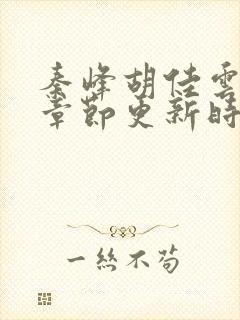 秦峰胡佳雲
章節更新時
一絲不苟